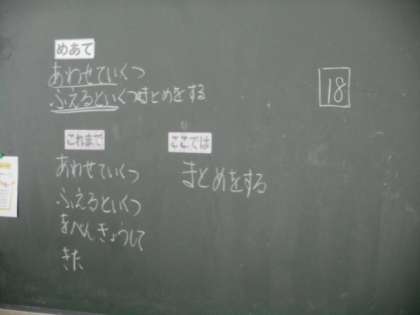 めあて
あわせていくつ
ふえるといくつまとめをする
18
これまで
あわせていくつ
ふえるといくつ
をべんきょうして
きた
ここでは
まとめをする